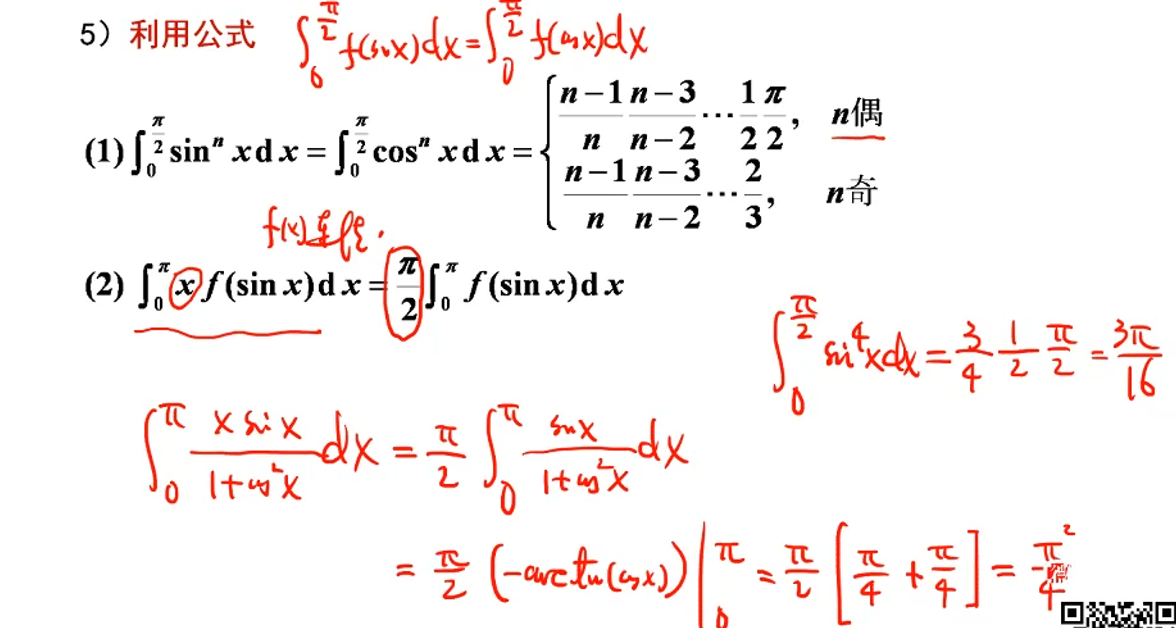 5）利用公式 ∫₀^{π/2} f(sin x)dx = ∫₀^{π/2} f(cos x)dx
(1) ∫₀^{π/2} sinⁿ x d x = ∫₀^{π/2} cosⁿ x d x = { (n−1)/n (n−3)/(n−2) ⋯ 1/2 π/2, n偶
(n−1)/n (n−3)/(n−2) ⋯ 2/3, n奇
f(x)连续.
(2) ∫₀^π x f(sin x)d x = π/2 ∫₀^π f(sin x)d x
∫₀^{π/2} sin⁴xdx = 3/4 1/2 π/2 = 3π/16
∫₀^π (x sin x)/(1+cos²x) dx = π/2 ∫₀^π (sin x)/(1+cos²x) dx
= π/2 (−arctan(cos x)) |₀^π = π/2 [π/4 + π/4] = π²/4